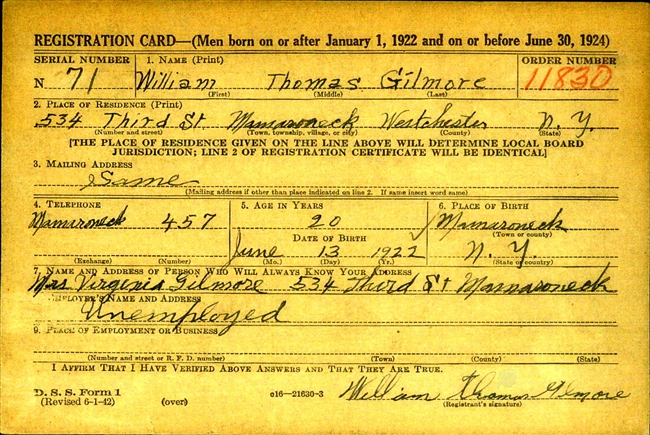 REGISTRATION CARD—(Men born on or after January 1, 1922 and on or before June 30, 1924)
SERIAL NUMBER 1. NAME (Print) ORDER NUMBER
N 71 William Thomas Gilmore 11830
(First) (Middle) (Last)
2. PLACE OF RESIDENCE (Print)
534 Third St Mamaroneck Westchester N. Y.
(Number and street) (Town, township, village, or city) (County) (State)
[THE PLACE OF RESIDENCE GIVEN ON THE LINE ABOVE WILL DETERMINE LOCAL BOARD
JURISDICTION; LINE 2 OF REGISTRATION CERTIFICATE WILL BE IDENTICAL]
3. MAILING ADDRESS
Same
[Mailing address if other than place indicated on line 2. If same insert word same]
4. TELEPHONE 5. AGE IN YEARS 6. PLACE OF BIRTH
Mamaroneck 457 20 Mamaroneck
DATE OF BIRTH (Town or county)
June 13 1922 N. Y.
(Exchange) (Number) (Mo.) (Day) (Yr.) (State or country)
7. NAME AND ADDRESS OF PERSON WHO WILL ALWAYS KNOW YOUR ADDRESS
Mrs Virginia Gilmore 534 Third St Mamaroneck
EMPLOYER'S NAME AND ADDRESS
Unemployed
9. PLACE OF EMPLOYMENT OR BUSINESS
(Number and street or R. F. D. number) (Town) (County) (State)
I AFFIRM THAT I HAVE VERIFIED ABOVE ANSWERS AND THAT THEY ARE TRUE.
D. S. S. Form 1
(Revised 6-1-42) (over) c16—21630-3 William Thomas Gilmore
(Registrant's signature)